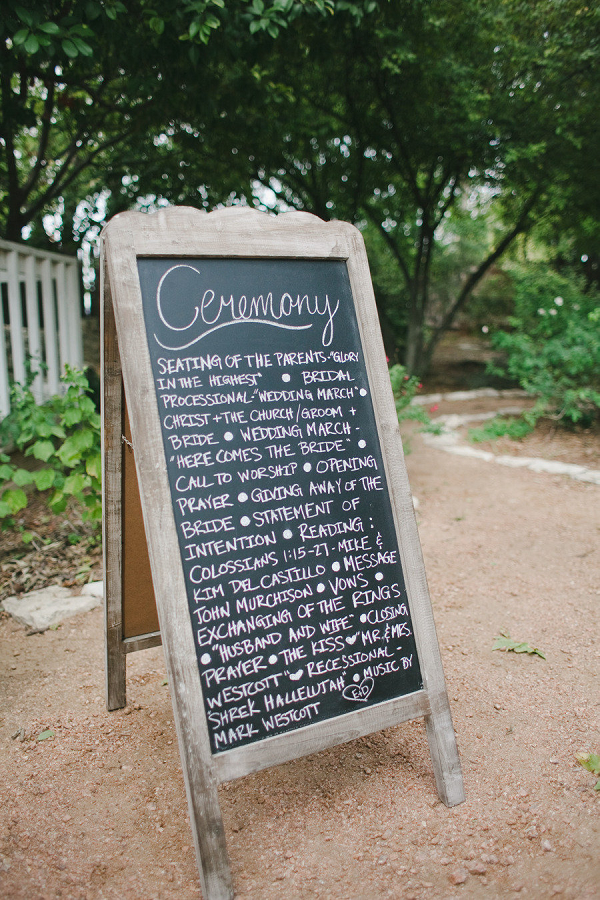 Ceremony
SEATING OF THE PARENTS-"GLORY
IN THE HIGHEST" • BRIDAL
PROCESSIONAL-"WEDDING MARCH"-
CHRIST + THE CHURCH/GROOM +
BRIDE • WEDDING MARCH -
"HERE COMES THE BRIDE" •
CALL TO WORSHIP • OPENING
PRAYER • GIVING AWAY OF THE
BRIDE • STATEMENT OF
INTENTION • READING:
COLOSSIANS 1:15-27 - MIKE &
KIM DEL CASTILLO • MESSAGE
JOHN MURCHISON • VOWS •
EXCHANGING OF THE RINGS
• "HUSBAND AND WIFE" • CLOSING
PRAYER • THE KISS ♥ "MR. & MRS.
WESTCOTT" ♥ RECESSIONAL -
"SHREK HALLELUJAH" • MUSIC BY
MARK WESTCOTT E+D